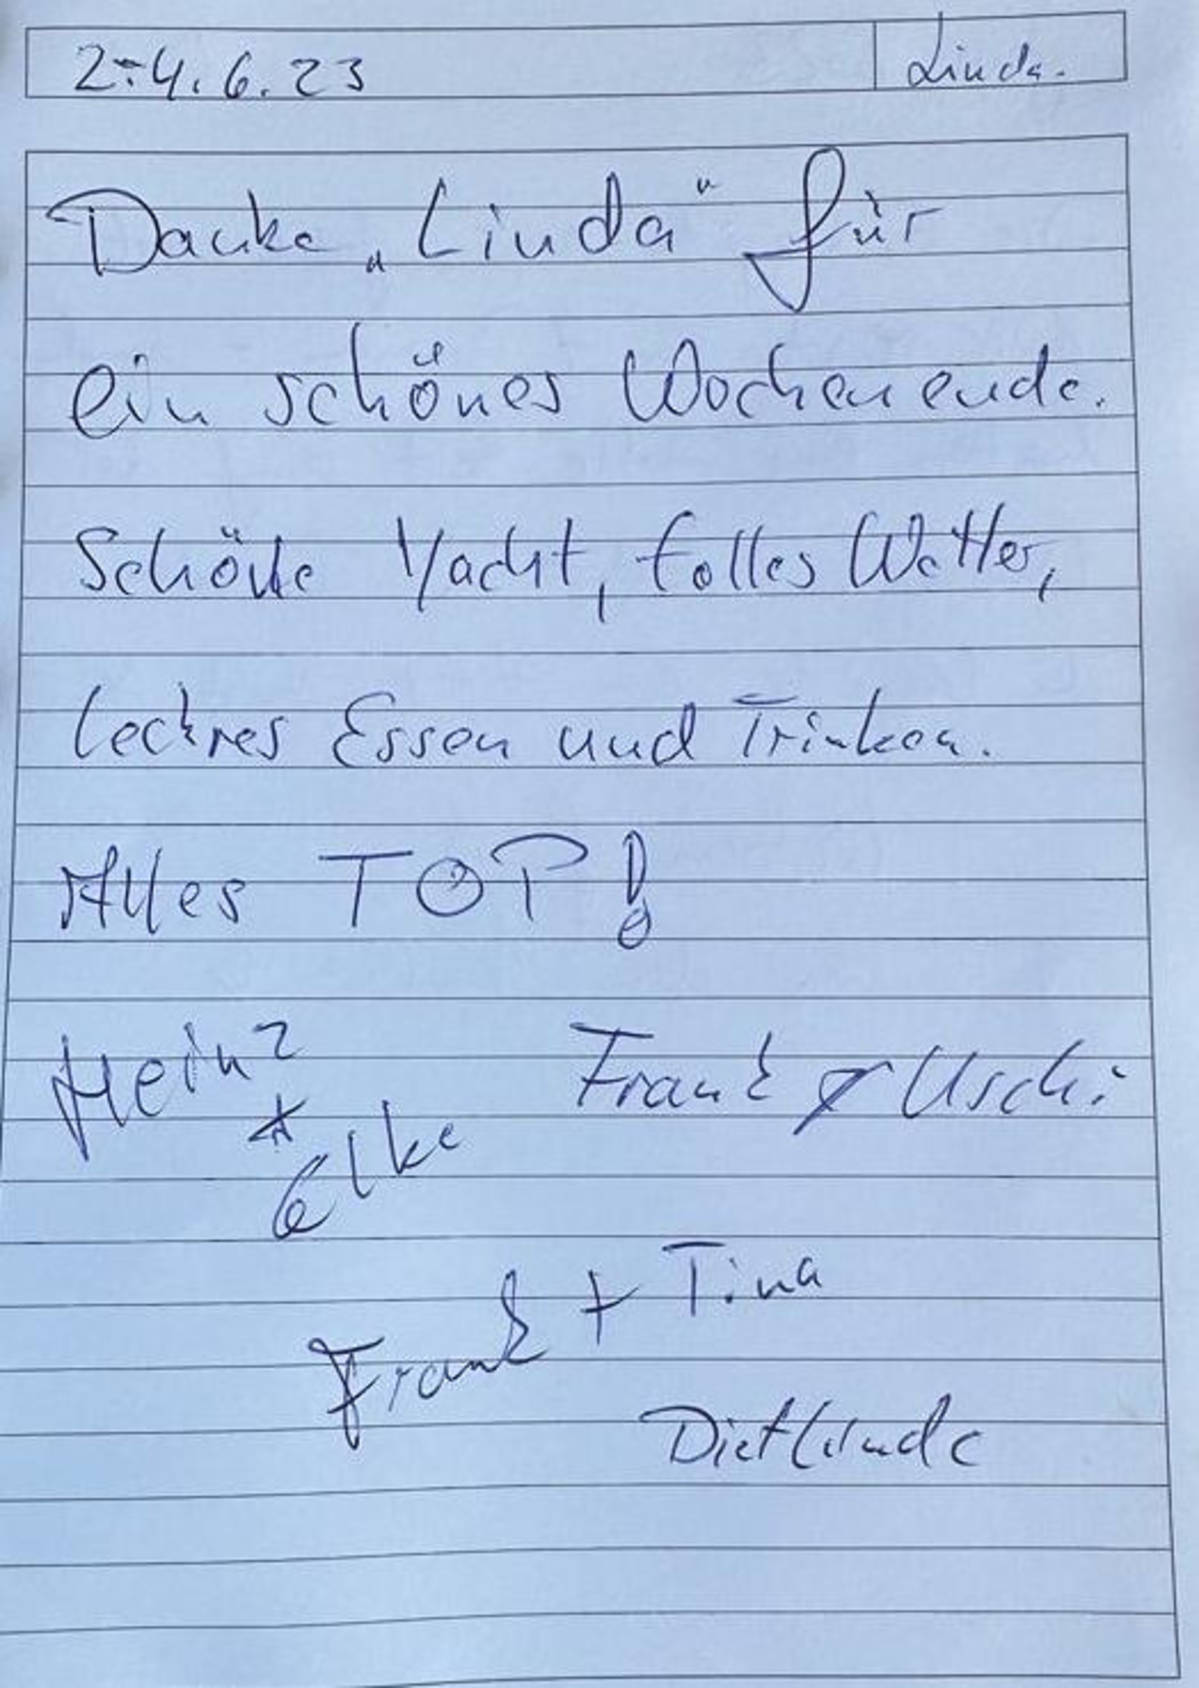 2.-4.6.23
Linda.
Danke „Linda“ für
ein schönes Wochenende.
Schöne Yacht, tolles Wetter,
leckres Essen und Trinken.
Alles TOP!
Heinz
+
Elke
Frank & Uschi
Frank + Tina
Dietlinde